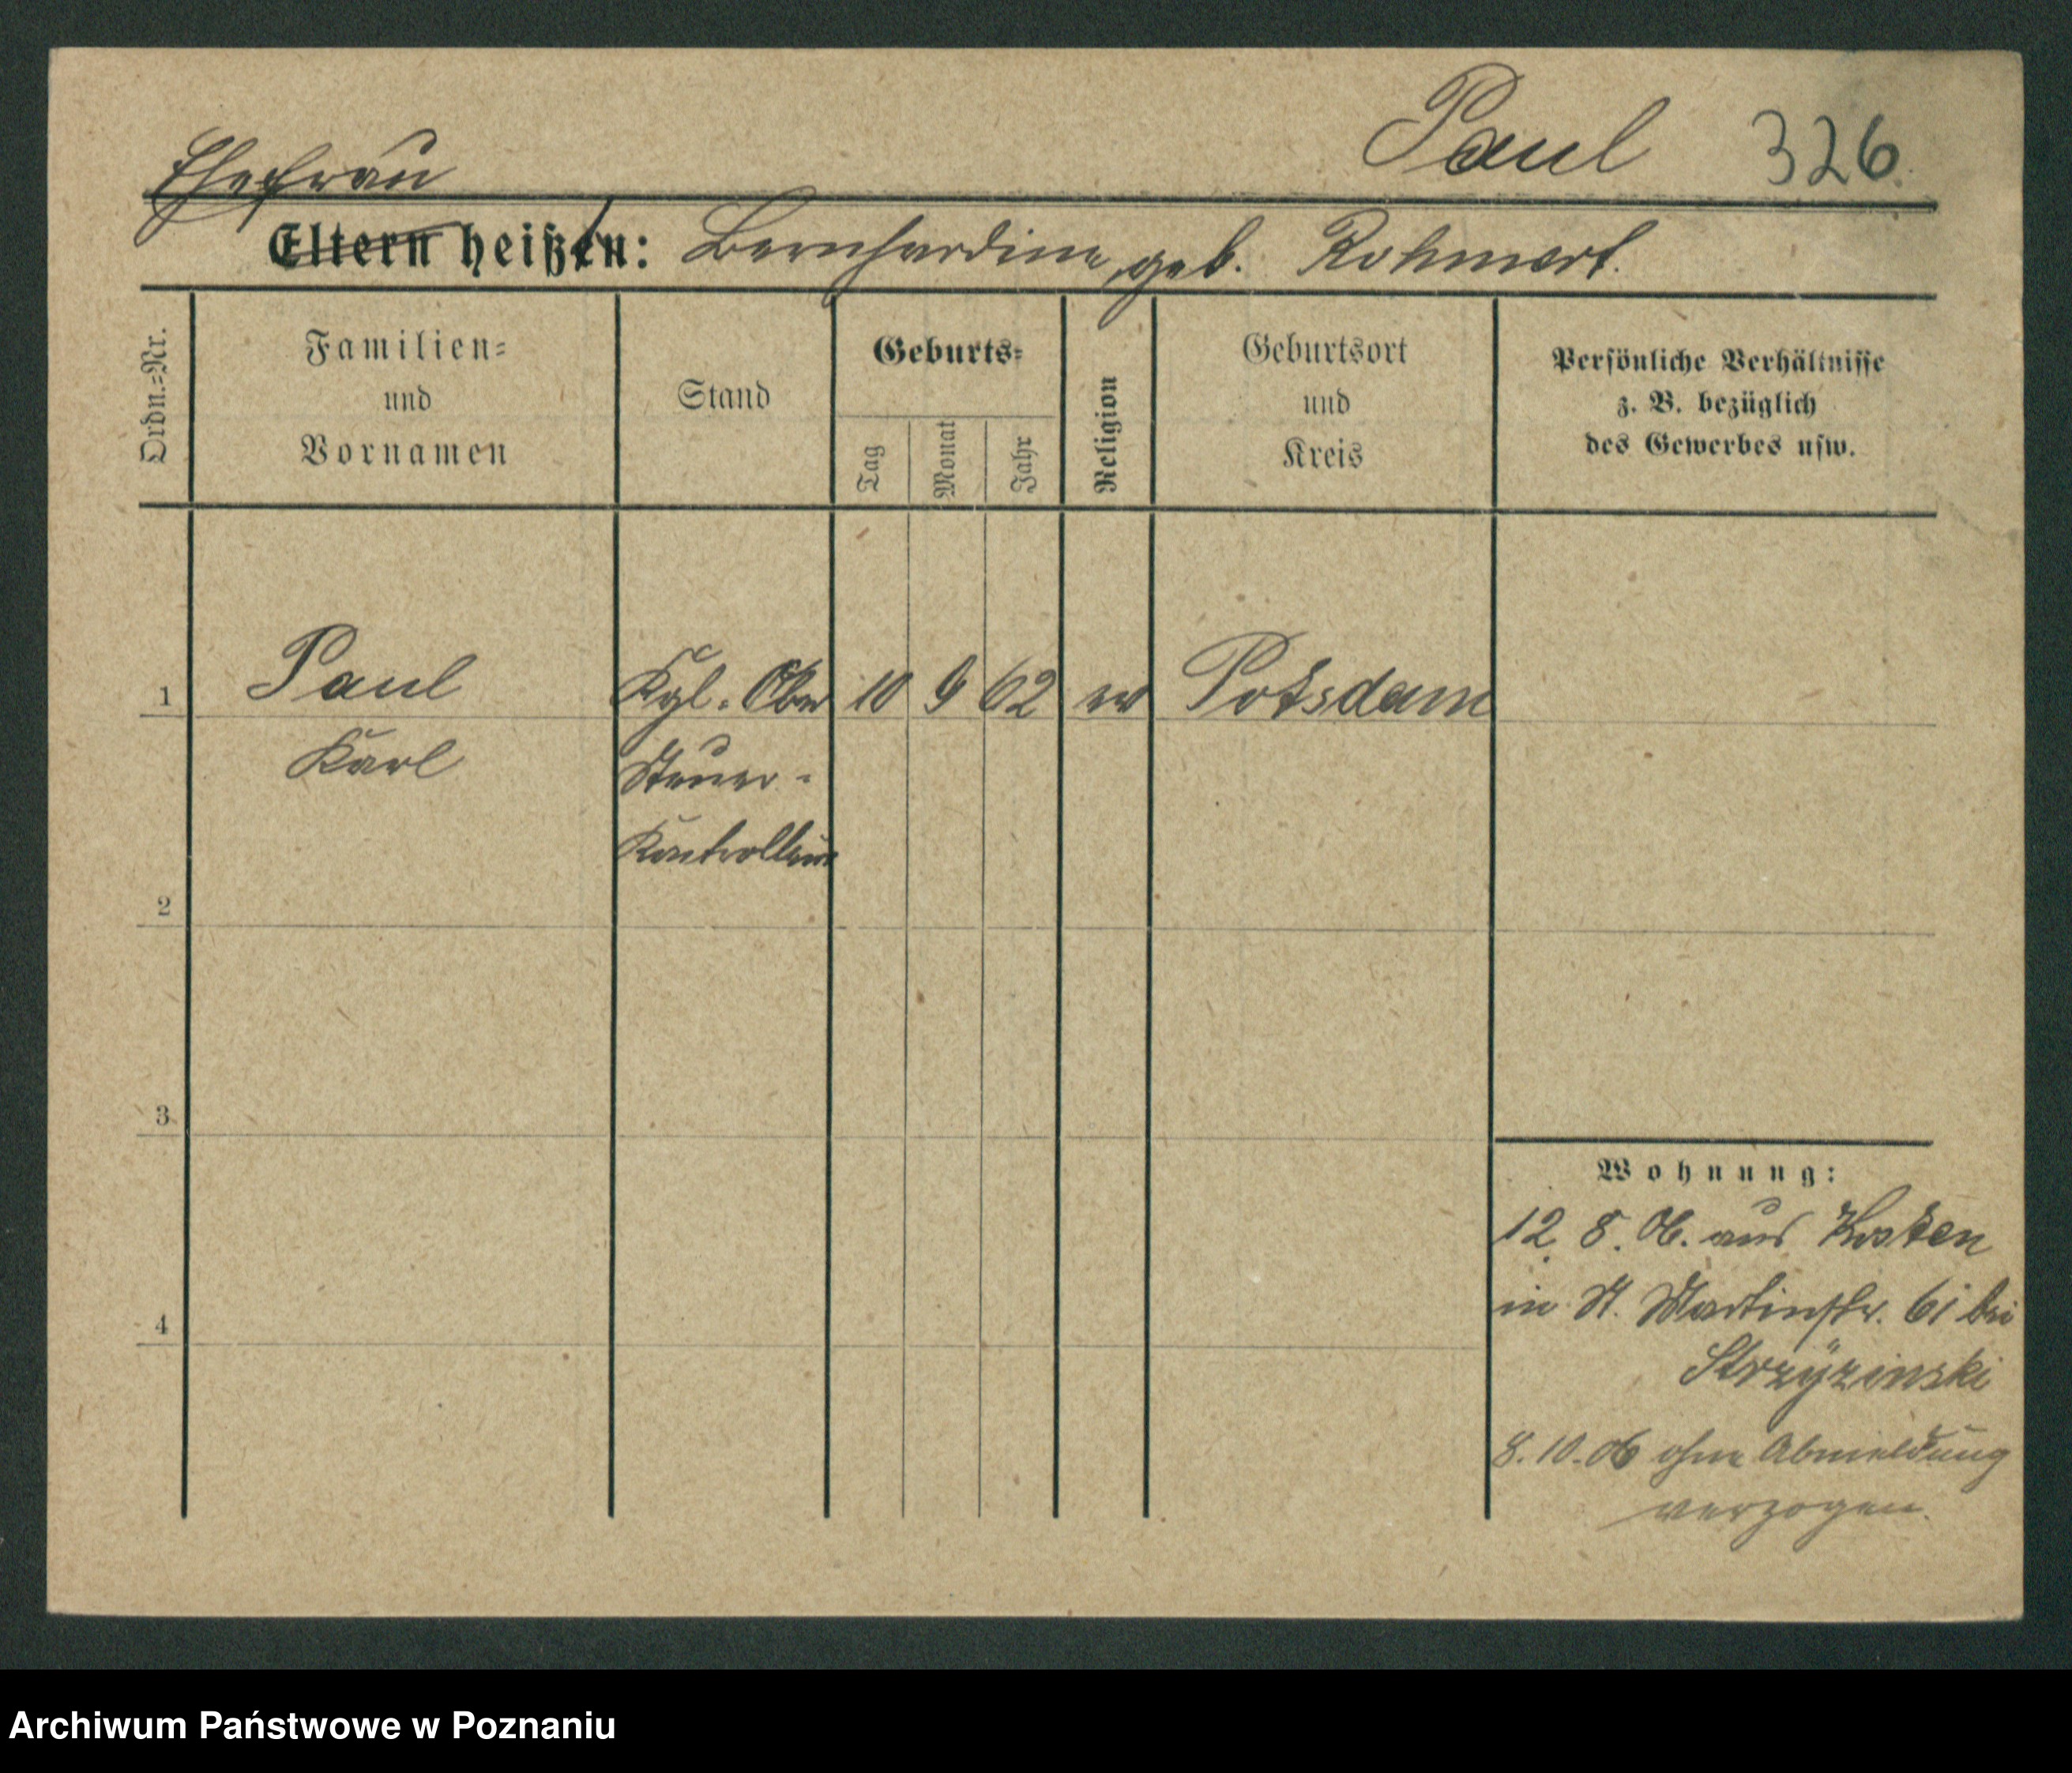 Paul 326.
Ehefrau
Eltern heißen: Bernhardine, geb. Rohmert.
Ordn.=Nr.
Familien=
und
Vornamen
Stand
Geburts=
Tag
Monat
Jahr
Religion
Geburtsort
und
Kreis
Persönliche Verhältnisse
z. B. bezüglich
des Gewerbes usw.
1 Paul Kgl. Ober 10 9 62 ev Potsdam
Karl Steuer-
Kontrolleur
2
3
4
Wohnung:
12. 8. 06. aus Kosten
in St. Martinstr. 61 bei
Strzÿzinski
8. 10. 06 ohne Abmeldung
verzogen.
Archiwum Państwowe w Poznaniu